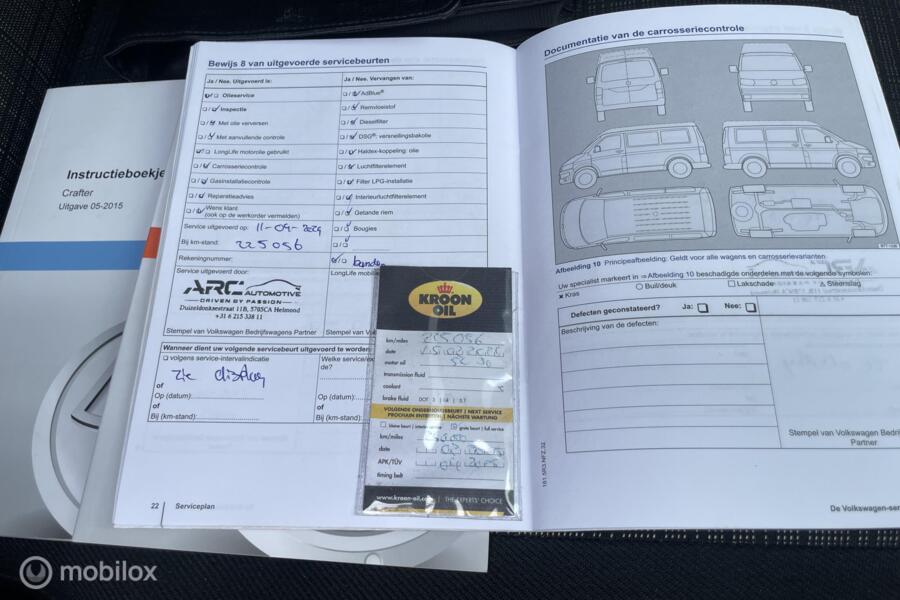 Instructieboekje
Crafter
Uitgave 05-2015
Bewijs 8 van uitgevoerde servicebeurten
Ja / Nee. Uitgevoerd is:
Olieservice
Inspectie
Met olie verversen
Met aanvullende controle
LongLife motorolie gebruikt
Carrosseriecontrole
Gasinstallatiecontrole
Reparatieadvies
Wens klant
(ook op de werkorder vermelden)
Service uitgevoerd op: 11-04-2024
Bij km-stand: 225056
Rekeningnummer:
Service uitgevoerd door:
ARC AUTOMOTIVE
DRIVEN BY PASSION
Duizeldonksestraat 11B, 5705CA Helmond
+31 6 215 338 11
Stempel van Volkswagen Bedrijfswagens Partner
Ja / Nee. Vervangen van:
AdBlue®
Remvloeistof
Dieselfilter
DSG®: versnellingsbakolie
Haldex-koppeling: olie
Luchtfilterelement
Filter LPG-installatie
Interieurluchtfilterelement
Getande riem
Bougies
banden
LongLife mobili
Stempel van Volks
Wanneer dient uw volgende servicebeurt te worden
volgens service-intervalindicatie
zie display
of
Op (datum):
of
Bij (km-stand):
Welke service/ex
de?
Op (datum):
of
Bij (km-stand):
22 Serviceplan
KROON
OIL
km/miles 225056
date
motor oil
transmission fluid
coolant
brake fluid DOT 3 | 4 | 5.1
VOLGENDE ONDERHOUDSBEURT | NEXT SERVICE
PROCHAIN ENTRETIEN | NÄCHSTE WARTUNG
kleine beurt | interim service grote beurt | full service
km/miles
date
APK/TÜV
timing belt
www.kroon-oil.com | THE EXPERTS' CHOICE
Documentatie van de carrosseriecontrole
Afbeelding 10 Principeafbeelding: Geldt voor alle wagens en carrosserievarianten.
Uw specialist markeert in ⇒ Afbeelding 10 beschadigde onderdelen met de volgende symbolen:
× Kras ○ Bui/deuk □ Lakschade △ Steenslag
Defecten geconstateerd? Ja: Nee:
Beschrijving van de defecten:
Stempel van Volkswagen Bedrij
Partner
181.5R3.NFZ.32
De Volkswagen-ser
mobilox